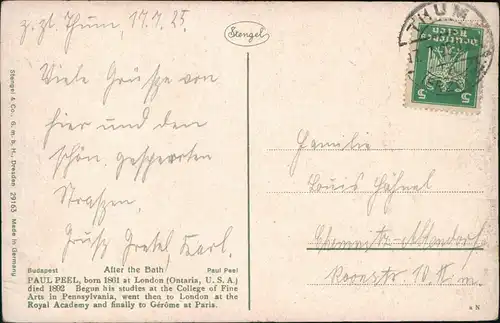 z. zt. Thum, 17.7.25
Stengel
THUM
Deutsches Reich
5 5
Viele Grüße von
hier und den
schön gesperrten
Straßen,
Gruß Gretel, Karl.
Familie
Louis Hähnel
Chemnitz-Altendorf
10 II m.
Stengel & Co., G. m. b. H., Dresden 29163 Made in Germany
Budapest After the Bath Paul Peel
PAUL PEEL, born 1861 at London (Ontaria, U. S. A.)
died 1892 Begun his studies at the College of Fine
Arts in Pennsylvania, went then to London at the
Royal Academy and finally to Gérôme at Paris.
a N